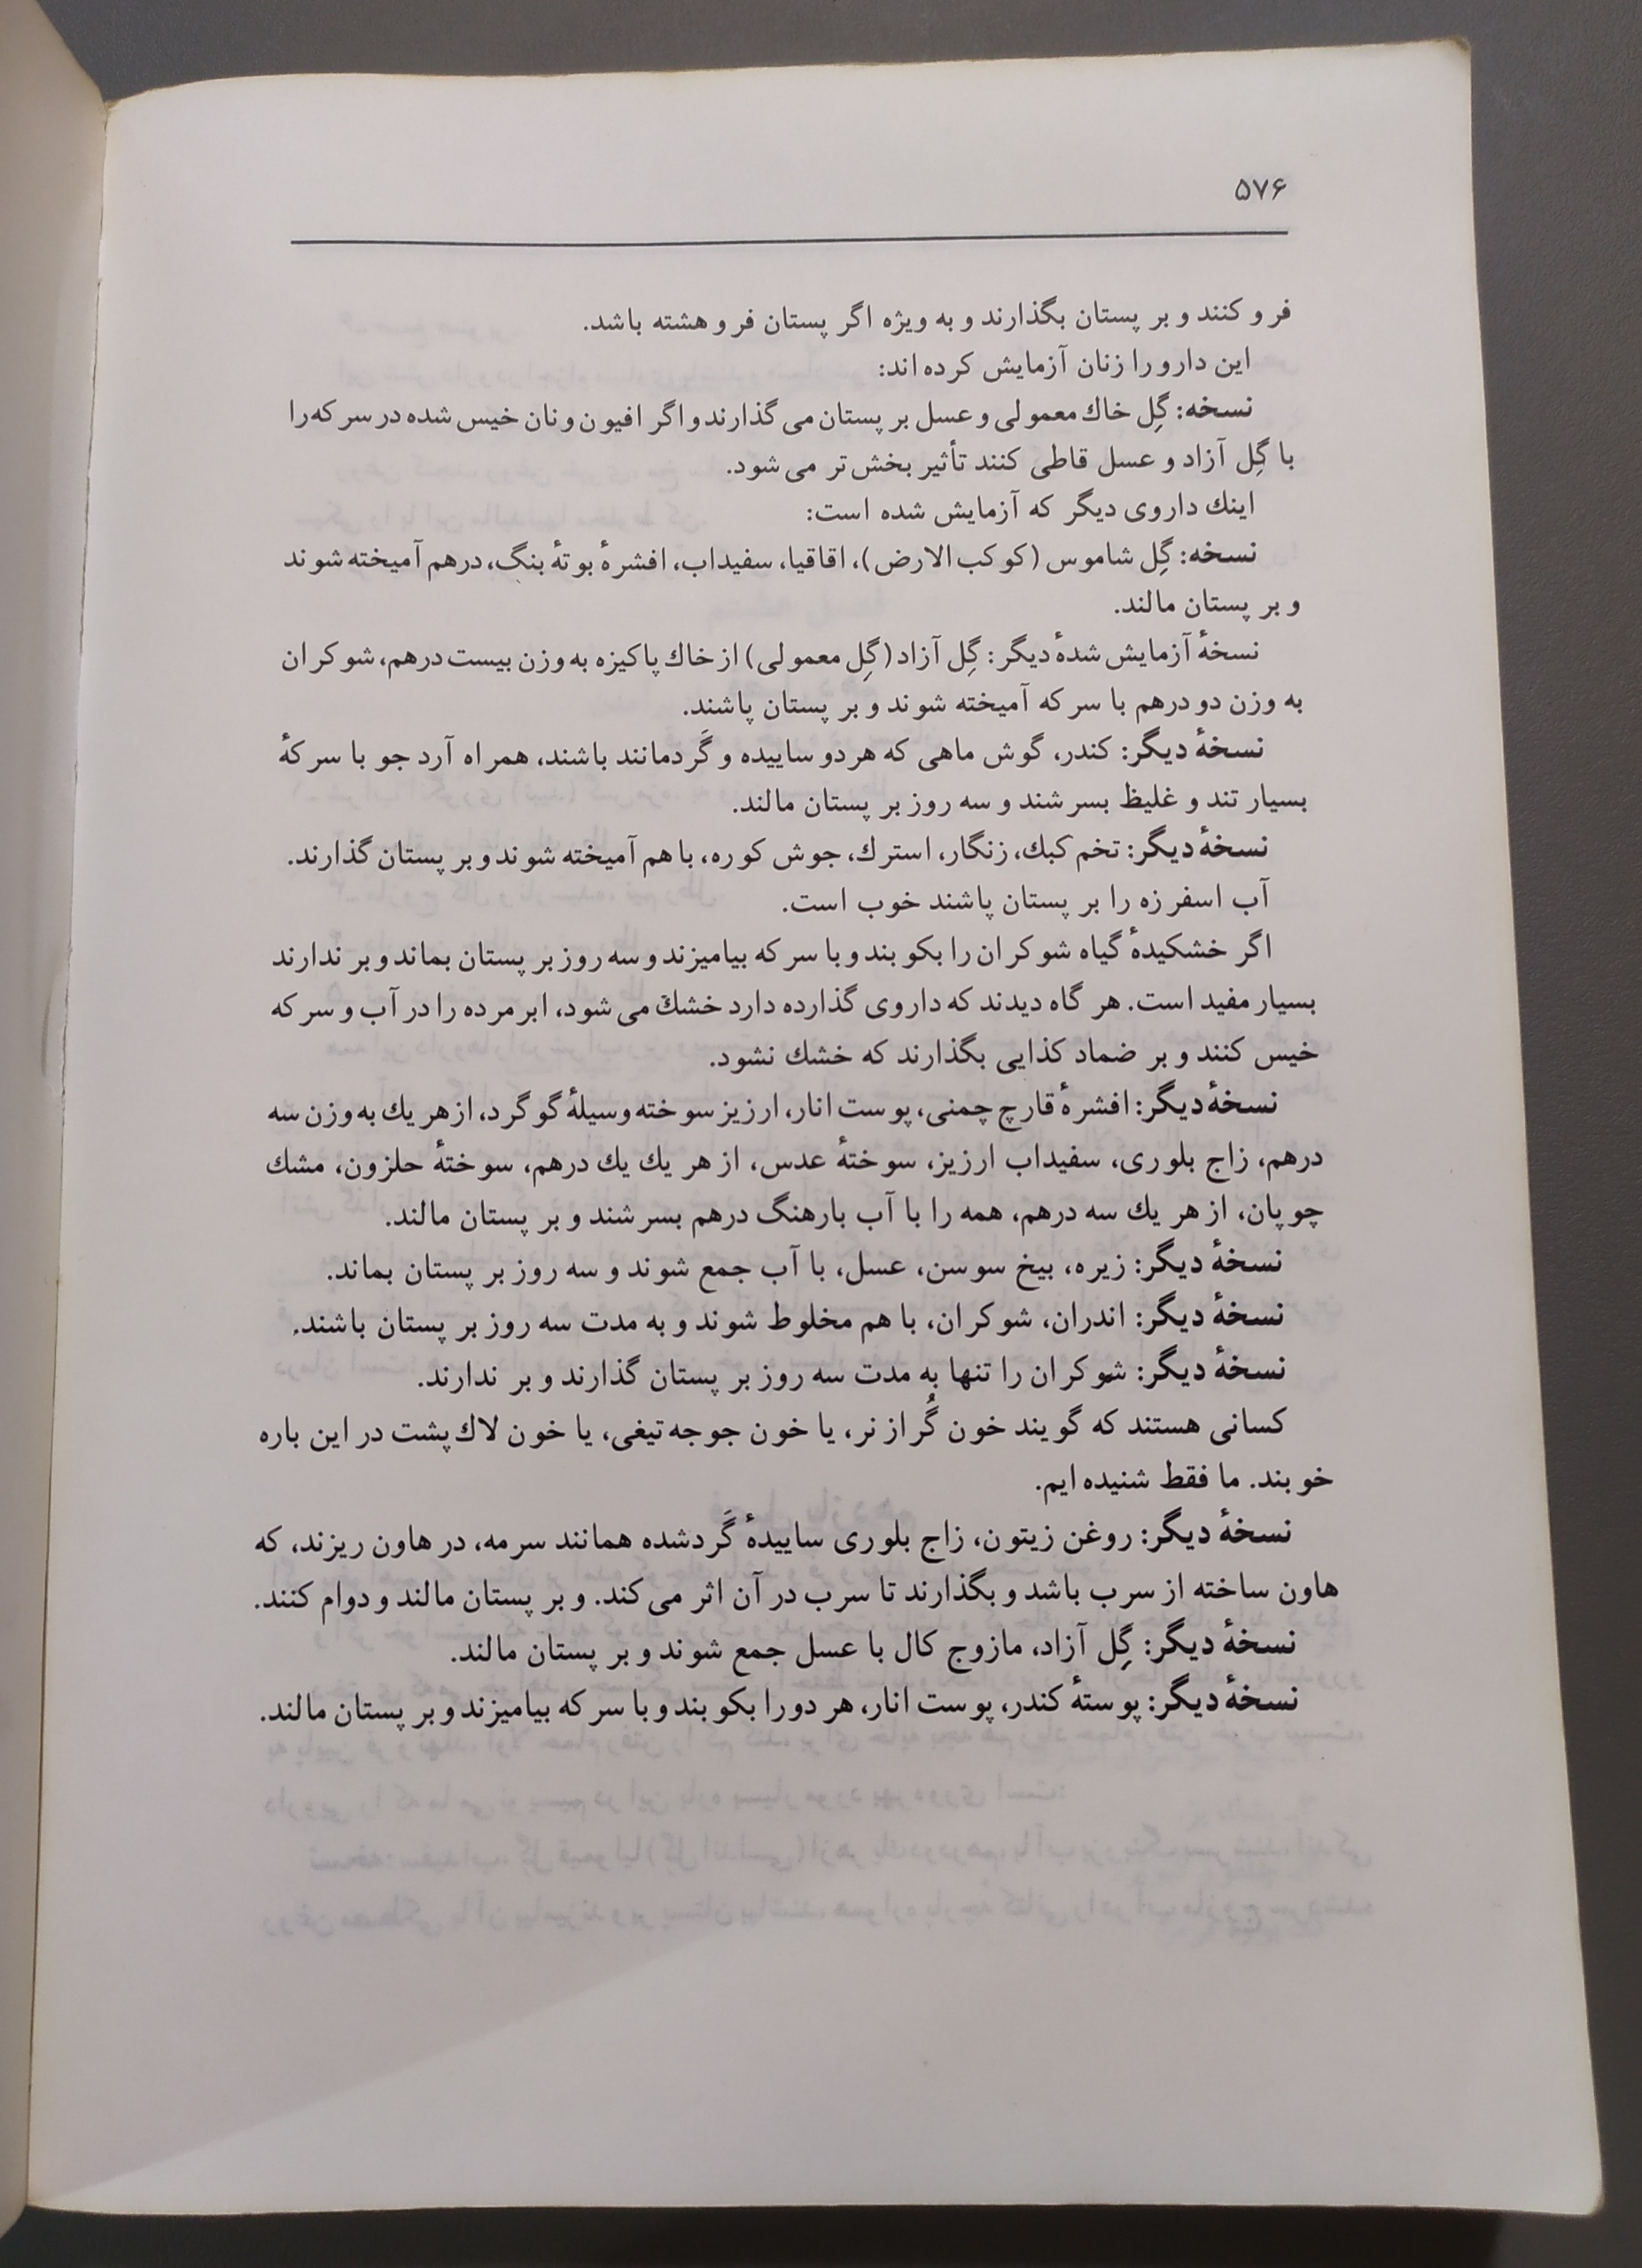 ۵۷۶
فرو کنند و بر پستان بگذارند و به ویژه اگر پستان فروهشته باشد.
این دارو را زنان آزمایش کرده‌اند:
نسخه: گِل خاك معمولی و عسل بر پستان می‌گذارند و اگر افیون و نان خیس شده در سرکه را
با گِل آزاد و عسل قاطی کنند تأثیر بخش‌تر می‌شود.
اینك داروی دیگر که آزمایش شده است:
نسخه: گِل شاموس (کوکب‌الارض)، اقاقیا، سفیداب، افشرهٔ بوتهٔ بنگ، درهم آمیخته شوند
و بر پستان مالند.
نسخهٔ آزمایش شدهٔ دیگر: گِل آزاد (گِل معمولی) از خاك پاکیزه به وزن بیست درهم، شوکران
به وزن دو درهم با سرکه آمیخته شوند و بر پستان پاشند.
نسخهٔ دیگر: کندر، گوش ماهی که هر دو ساییده و گَردمانند باشند، همراه آرد جو با سرکهٔ
بسیار تند و غلیظ بسرشند و سه روز بر پستان مالند.
نسخهٔ دیگر: تخم کبك، زنگار، استرك، جوش کوره، با هم آمیخته شوند و بر پستان گذارند.
آب اسفرزه را بر پستان پاشند خوب است.
اگر خشکیدهٔ گیاه شوکران را بکوبند و با سرکه بیامیزند و سه روز بر پستان بماند و بر ندارند
بسیار مفید است. هر گاه دیدند که داروی گذارده دارد خشك می‌شود، ابر مرده را در آب و سرکه
خیس کنند و بر ضماد کذایی بگذارند که خشك نشود.
نسخهٔ دیگر: افشرهٔ قارچ چمنی، پوست انار، ارزیز سوخته وسیلهٔ گوگرد، از هر یك به وزن سه
درهم، زاج بلوری، سفیداب ارزیز، سوختهٔ عدس، از هر یك یك درهم، سوختهٔ حلزون، مشك
چوپان، از هر یك سه درهم، همه را با آب بارهنگ درهم بسرشند و بر پستان مالند.
نسخهٔ دیگر: زیره، بیخ سوسن، عسل، با آب جمع شوند و سه روز بر پستان بماند.
نسخهٔ دیگر: اندران، شوکران، با هم مخلوط شوند و به مدت سه روز بر پستان باشند.
نسخهٔ دیگر: شوکران را تنها به مدت سه روز بر پستان گذارند و بر ندارند.
کسانی هستند که گویند خون گُراز نر، یا خون جوجه‌تیغی، یا خون لاك‌پشت در این باره
خوبند. ما فقط شنیده‌ایم.
نسخهٔ دیگر: روغن زیتون، زاج بلوری ساییدهٔ گَردشده همانند سرمه، در هاون ریزند، که
هاون ساخته از سرب باشد و بگذارند تا سرب در آن اثر می‌کند. و بر پستان مالند و دوام کنند.
نسخهٔ دیگر: گِل آزاد، مازوج کال با عسل جمع شوند و بر پستان مالند.
نسخهٔ دیگر: پوستهٔ کندر، پوست انار، هر دو را بکوبند و با سرکه بیامیزند و بر پستان مالند.